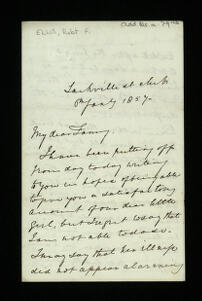 Ellis, Robt. F.
Add. Ms.
Sackville st club
Jany 1857.
My dear Fanny
I have been putting off
from day to day writing
to you in hopes of being able
to give you a satisfactory
account of our dear little
girl, but I regret to say that
I am not able to do so.
I may say that her illness
did not appear alarming